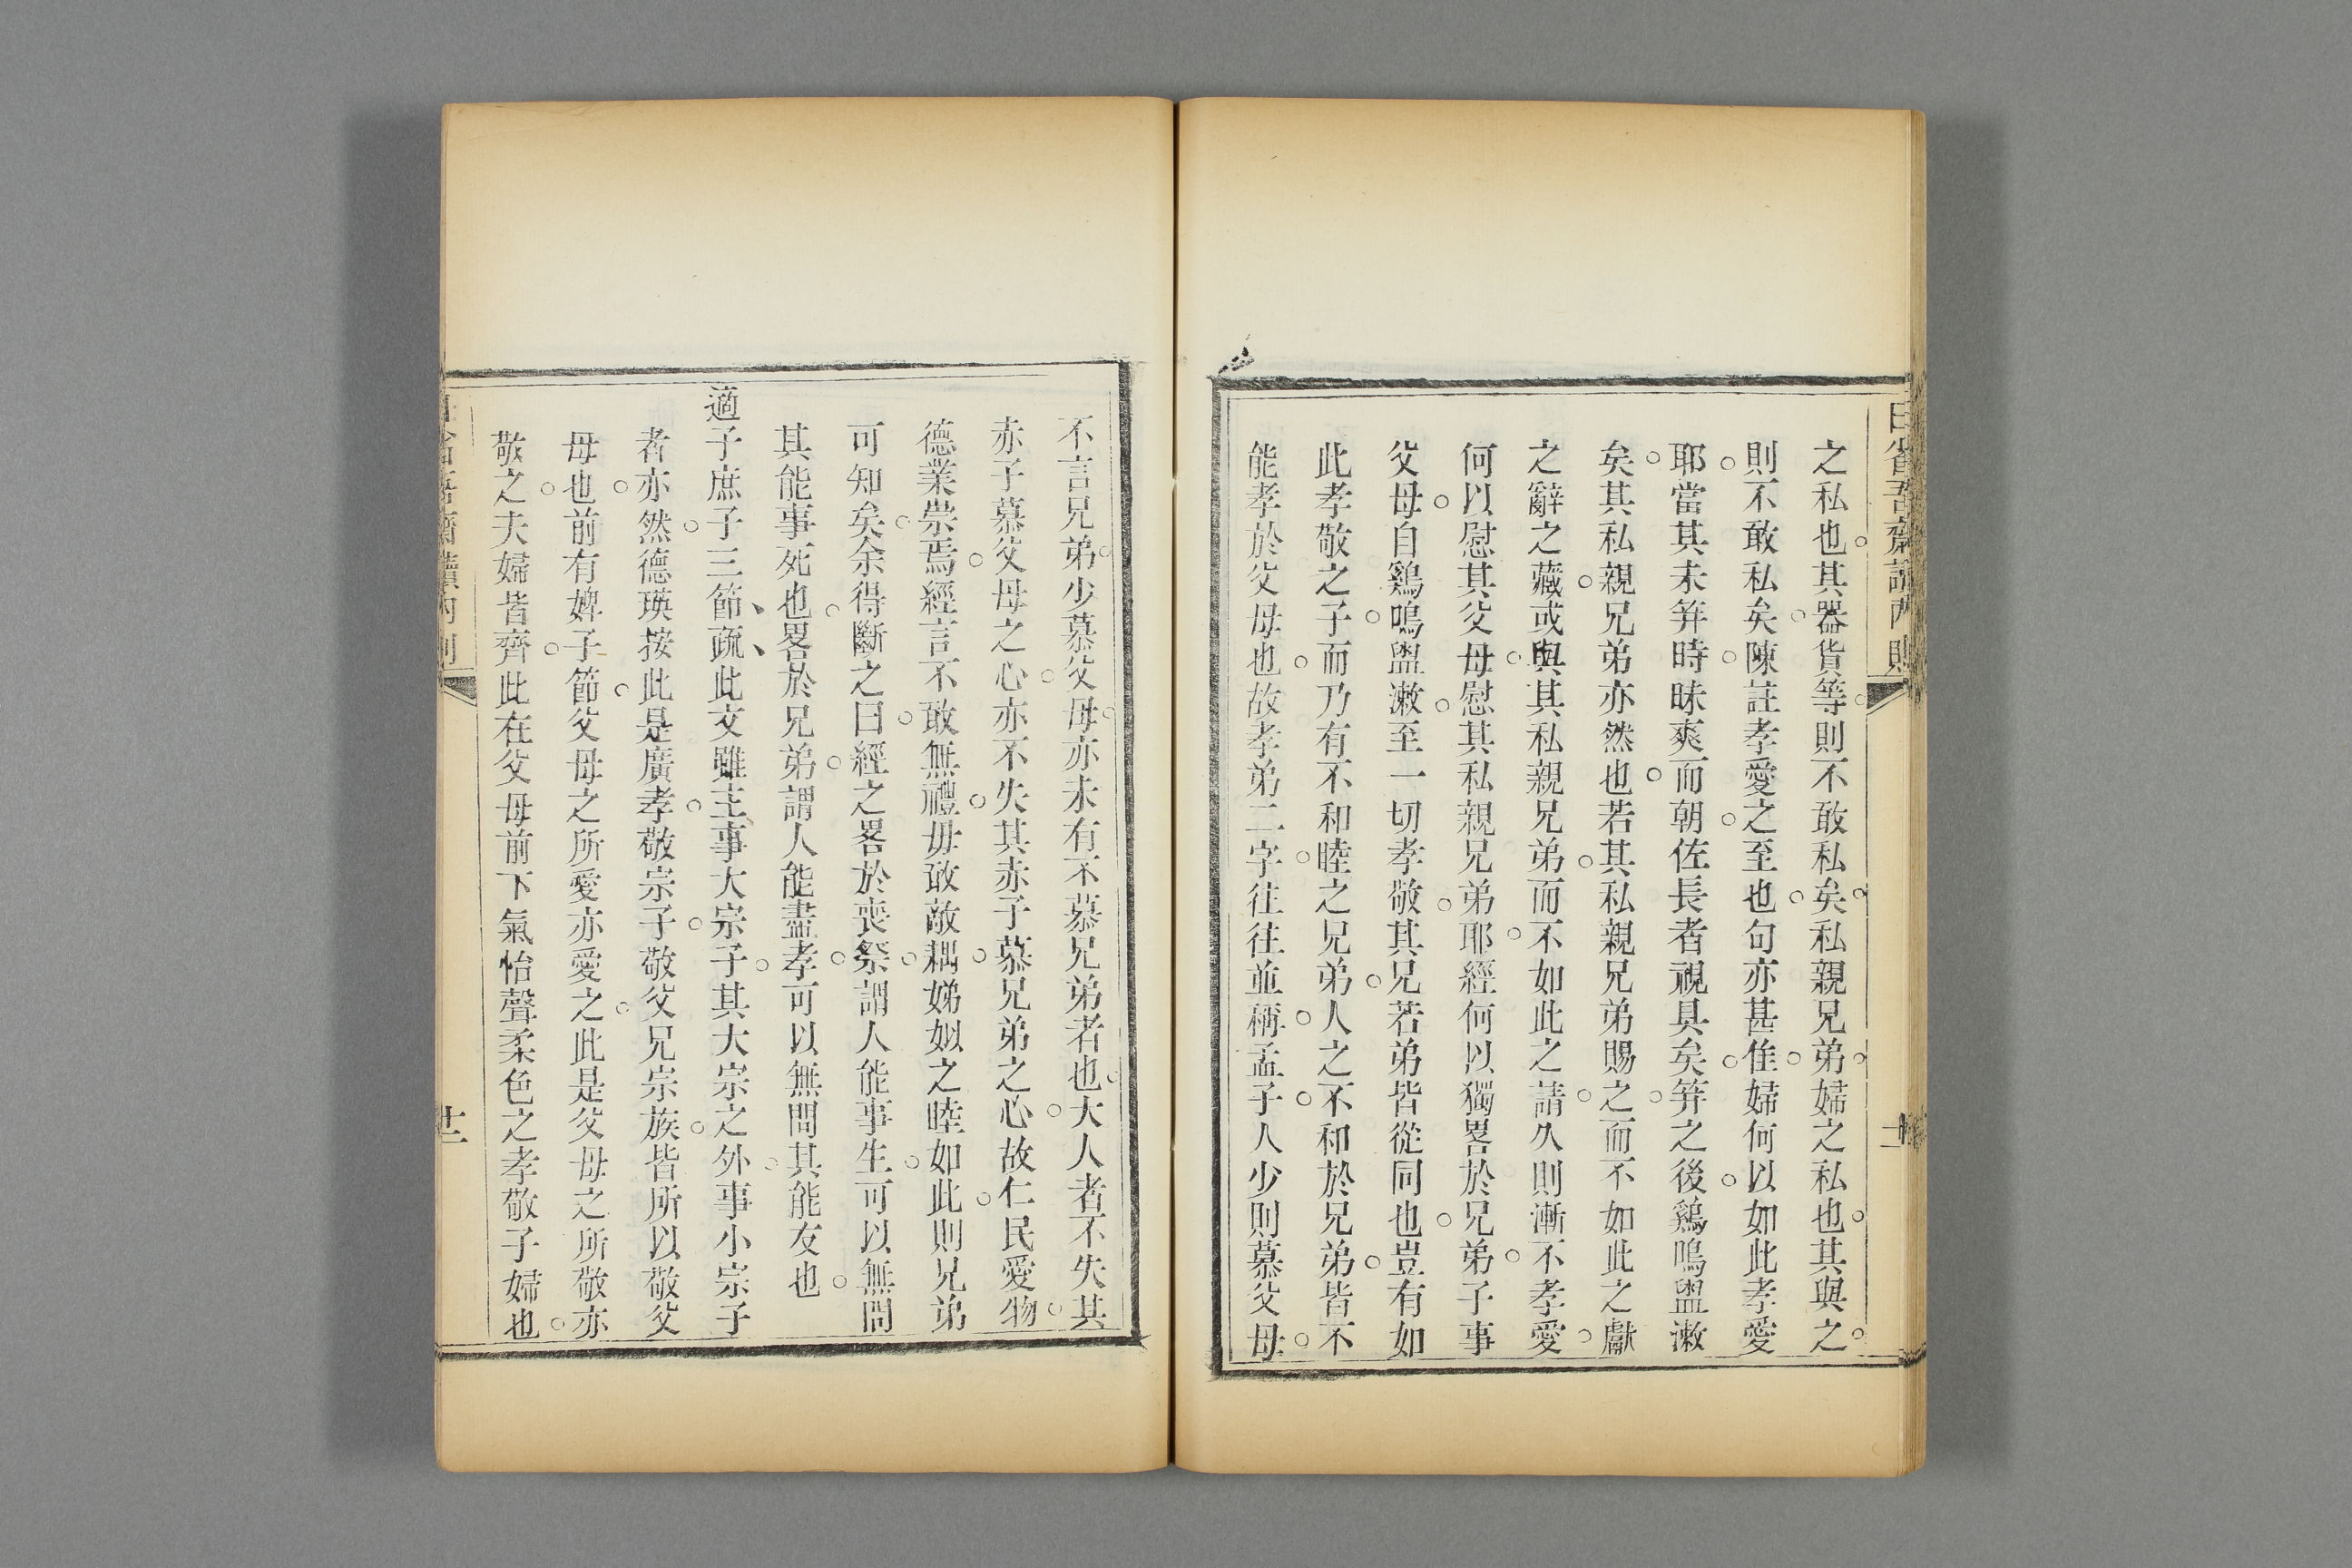 之私也其器貨等則不敢私矣私親兄弟婦之私也其與之
則不敢私矣陳註孝愛之至也句亦甚隹婦何以如此孝愛
耶當其未笄時昧爽而朝佐長者視具矣笄之後鷄鳴盥漱
矣其私親兄弟亦然也若其私親兄弟賜之而不如此之獻
之辭之藏或與其私親兄弟而不如此之請久則漸不孝愛
何以慰其父母慰其私親兄弟耶經何以獨畧於兄弟子事
父母自鷄鳴盥漱至一切孝敬其兄若弟皆從同也豈有如
此孝敬之子而乃有不和睦之兄弟人之不和於兄弟皆不
能孝於父母也故孝弟二字往往並稱孟子人少則慕父母
不言兄弟少慕父母亦未有不慕兄弟者也大人者不失其
赤子慕父母之心亦不失其赤子慕兄弟之心故仁民愛物
德業崇焉經言不敢無禮毋敢敵耦娣姒之睦如此則兄弟
可知矣余得斷之曰經之畧於喪祭謂人能事生可以無問
其能事死也畧於兄弟謂人能盡孝可以無問其能友也
適子庶子三節疏此文雖主事大宗子其大宗之外事小宗子
者亦然德瑛按此是廣孝敬宗子敬父兄宗族皆所以敬父
母也前有婢子節父母之所愛亦愛之此是父母之所敬亦
敬之夫婦皆齊此在父母前下氣怡聲柔色之孝敬子婦也
廿二